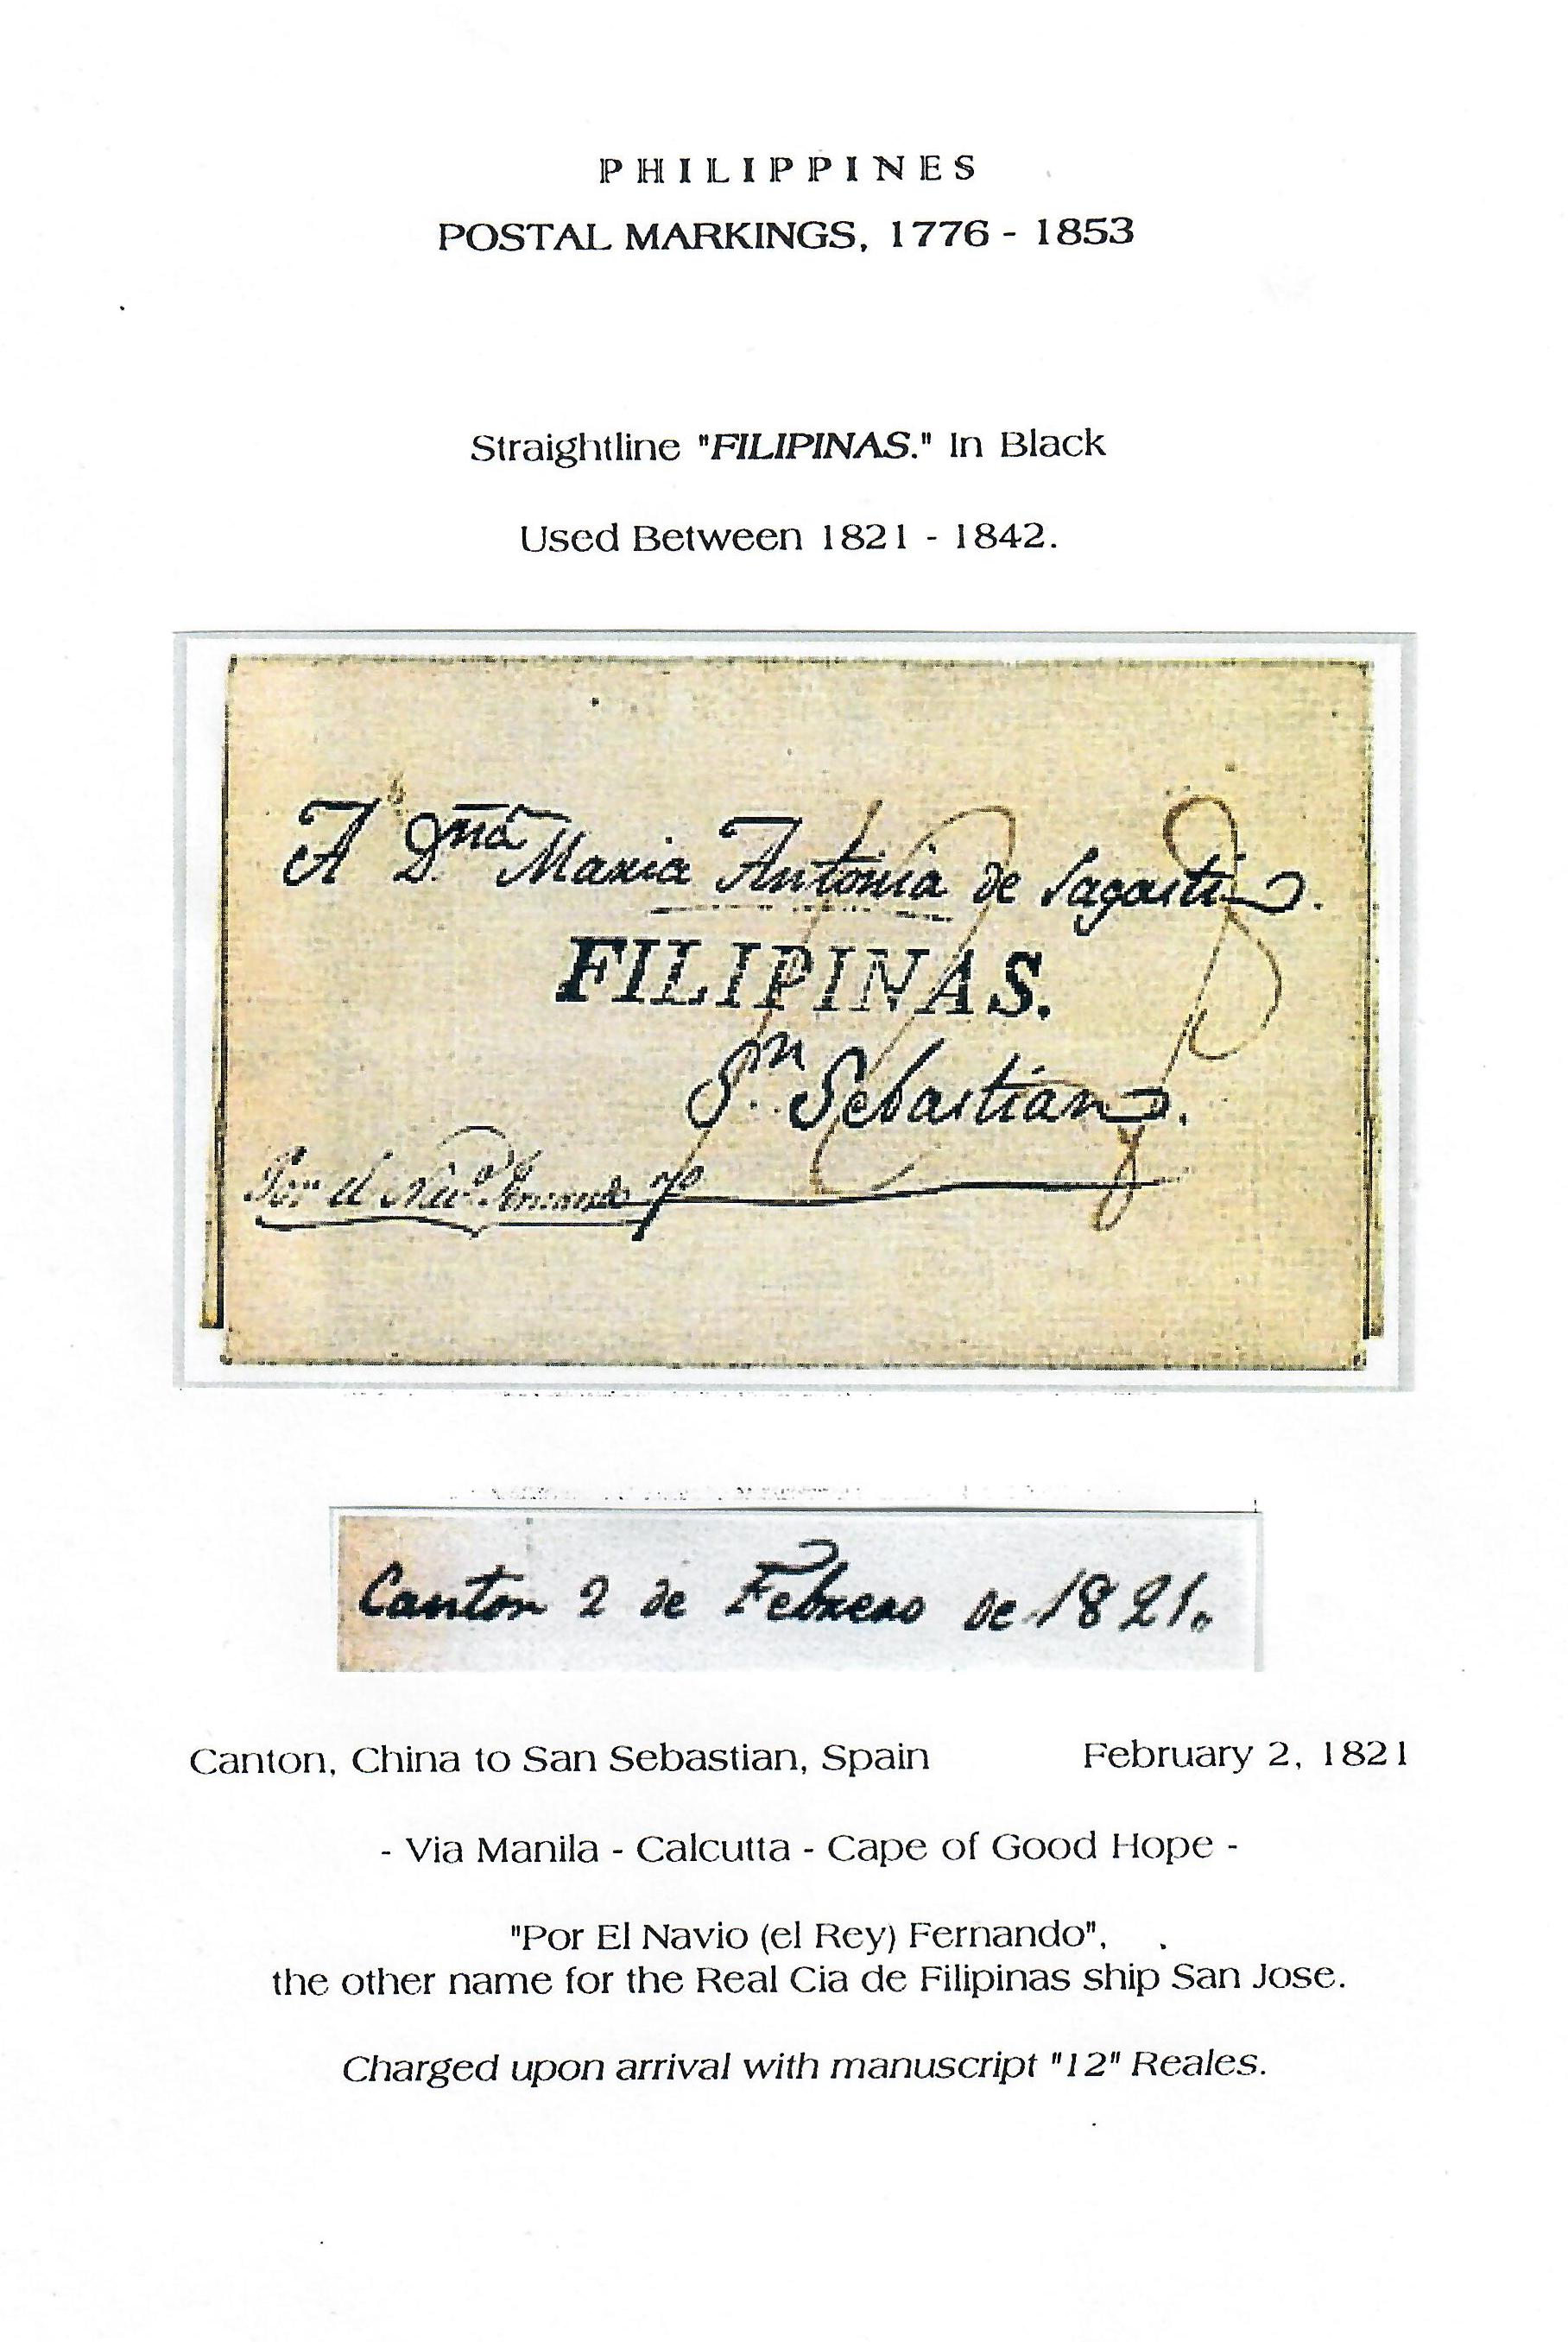 PHILIPPINES
POSTAL MARKINGS, 1776 - 1853
Straightline "FILIPINAS." In Black
Used Between 1821 - 1842.
A D.ⁿᵃ Maria Antonia de Sagasti.
FILIPINAS.
S.ⁿ Sebastian.
Por el Nav.º Fernando 7º
Canton 2 de Febrero de 1821.
Canton, China to San Sebastian, Spain February 2, 1821
- Via Manila - Calcutta - Cape of Good Hope -
"Por El Navio (el Rey) Fernando",
the other name for the Real Cia de Filipinas ship San Jose.
Charged upon arrival with manuscript "12" Reales.